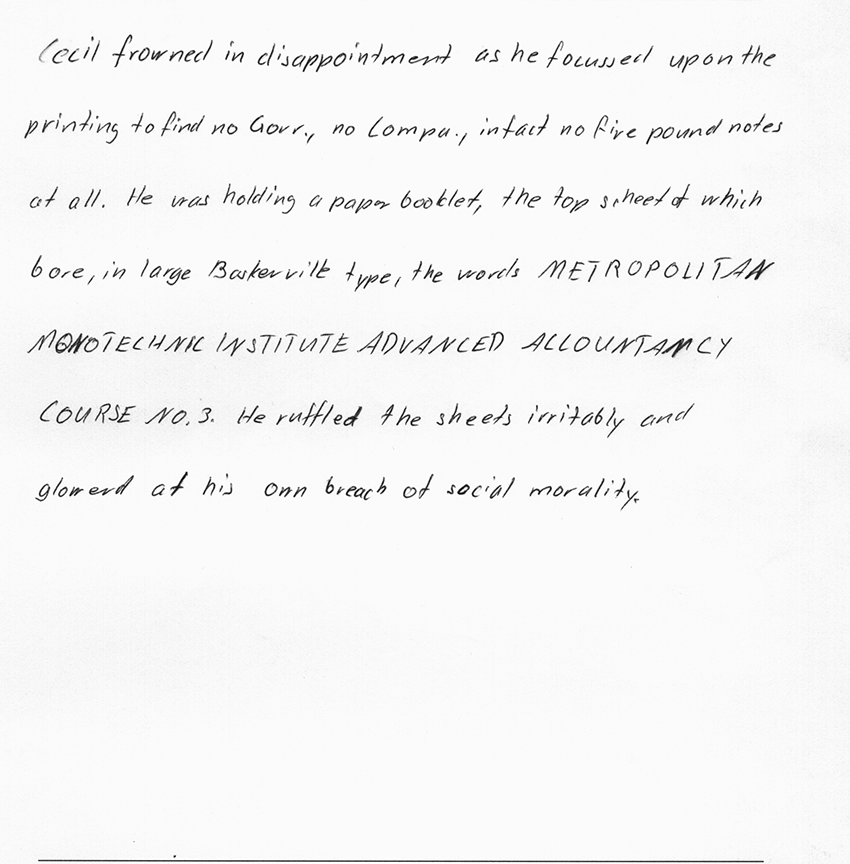 Cecil frowned in disappointment as he focussed upon the
printing to find no Govr., no Compa., infact no five pound notes
at all. He was holding a paper booklet, the top scheet of which
bore, in large Baskerville type, the words METROPOLITAN
MONOTECHNIC INSTITUTE ADVANCED ACCOUNTANCY
COURSE NO. 3. He ruffled the sheets irritably and
glowerd at his own breach of social morality.